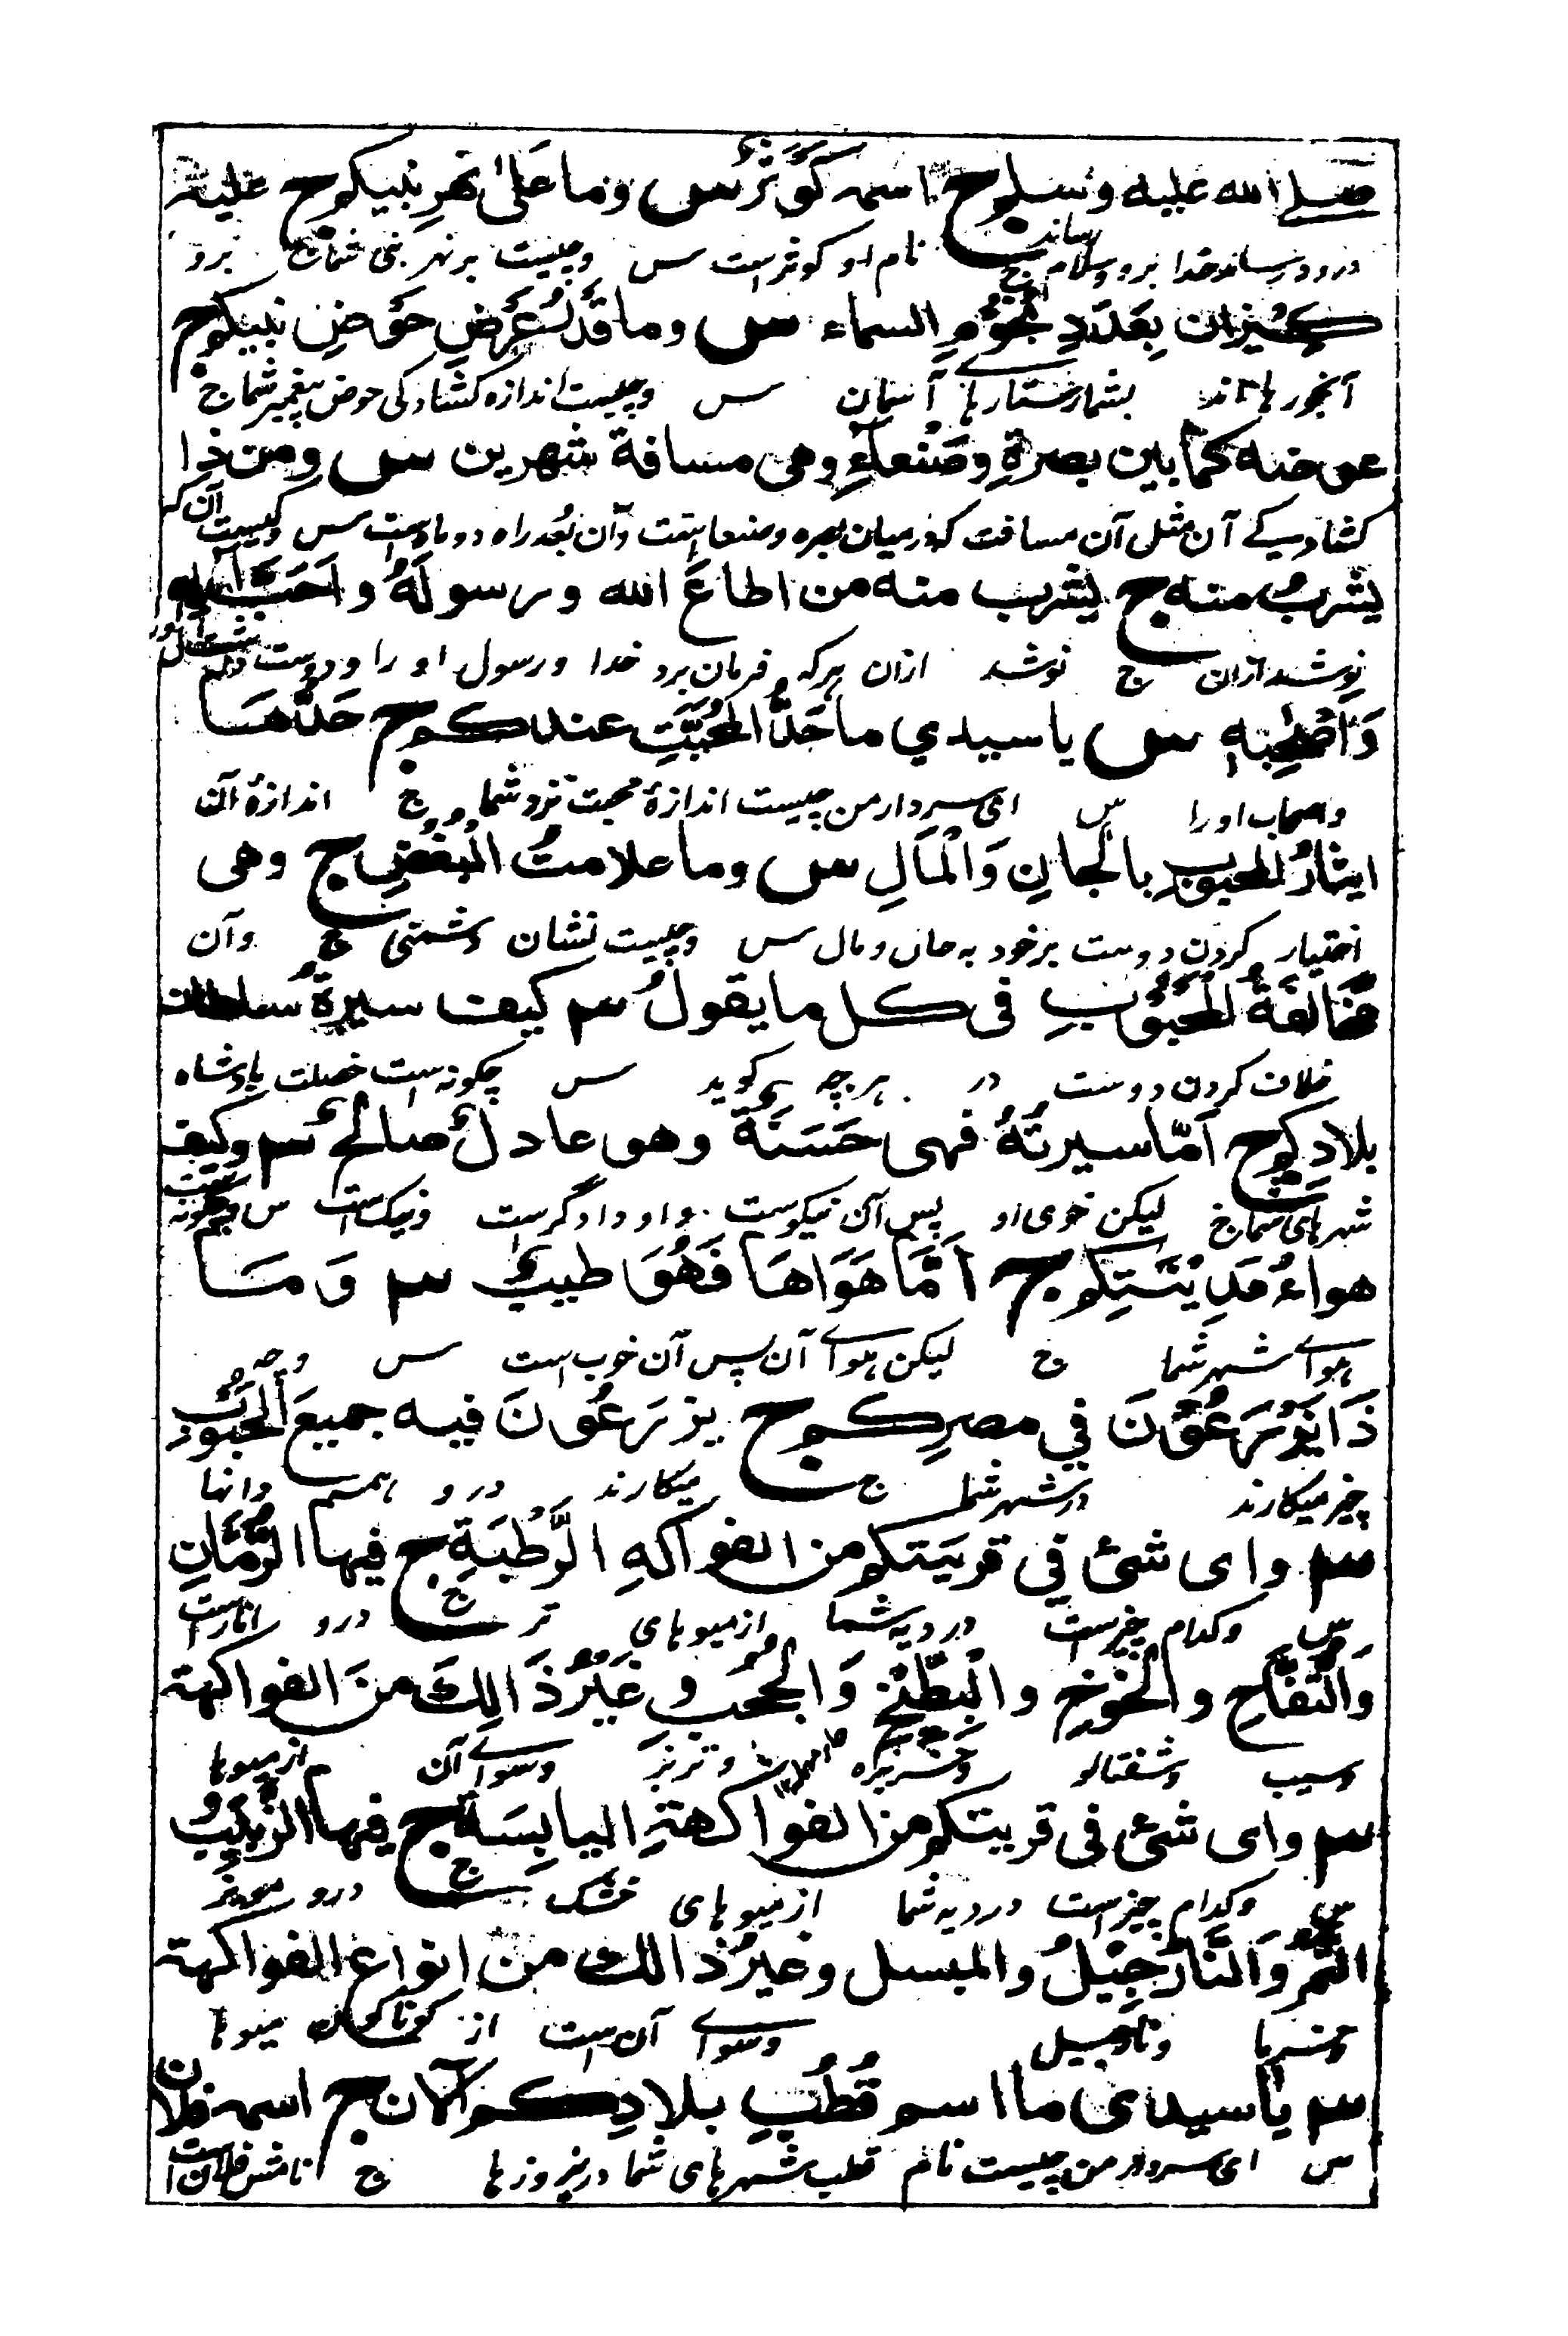 صلے الله عليه وسلم ج اسمه كَوْثَرٌ س وما عَلىٰ نَهرِ نبيكم ج عليه
درود رساند خدا برو و سلام رساند ج نام او کوثر است س و چیست بر نهر نبی شما ج برو
كِيْزان بِعَدَدِ نُجُوْمِ السماء س وما قَدْرُ عَرْضِ حَوْضِ نبيكم ج
آبخورها اند بشمار ستارهاے آسمان س و چیست اندازه کشادگی حوض پیغمبر شما ج
عرضه كما بين بصرةِ وصَنْعاءِ وهى مسافة شهرين س ومن ذا
کشادگیے آن مثل آن مسافت که درمیان بصره و صنعا است و آن بُعد راه دو ماه است س و کیست آن که
يشربُ منه ج يشرب منه من اطاعَ الله ورسولَهُ واَحَبَّ
نوشد ازان ج نوشد ازان هرکه فرمان برد خدا و رسول او را و دوست دارد
وَاَصْحٰبِهٖ س يا سيدي ما حَدُّ المُحَبَّتِ عندكم ج حَدُّهَا
و اصحاب او را س ای سردار من چیست اندازهٔ محبت نزد شما ج اندازهٔ آن
ايثارُ المحبوبِ بالجانِ وَالْمَالِ س وما علامتُ الْبُغْضِ ج وهى
اختیار کردن دوست بر خود به جان و مال س و چیست نشان دشمنی ج و آن
مُخَالَفَةُ الْمَحْبُوْبِ فى كل ما يقولُ س كيف سيرةُ سُلطان
خلاف کردن دوست در هر چه گوید س چگونه است خصلت پادشاه
بلادِكم ج اَمّا سيرتُهُ فهى حَسَنَةٌ وهو عادلٌ صالحٌ س وكيف
شهرهای شما ج لیکن خوی او پس آن نیکوست و او دادگر است و نیک است س و چگونه است
هواءُ مَدِيْنَتِكم ج اَمَّا هَوَاهَا فَهُوَ طيبٌ س وَمَا
هواے شهر شما ج لیکن هواے آن پس آن خوب است س و چه
ذَا يَزْرَعُوْنَ فِي مصرِكم ج يزرَعُوْنَ فيه جميعَ الْحُبُوْبِ
چیز میکارند در شهر شما ج میکارند درو همه دانها
س واى شئ فِي قريَتكم من الفواكهِ الرَّطْبَةِ ج فيها الرُّمَّانِ
س و کدام چیز است در دیه شما از میوهای تر ج درو انار است
وَالتُّفَّاحِ والْخَوْخِ والْبِطِّيْخِ وَالْحَبْحَبِ وغَيْرُ ذَالِكَ منَ الفواكهة
و سیب و شفتالو و خربزه و تربز و سواے آن از میوها
س واى شئ فى قريتكم من الفواكهةِ اليابِسَة ج فيها الزبيبُ
س و کدام چیز است در دیه شما از میوهای خشک ج درو مویز
التَّمْرُ وَالنَّارْجِيْلُ والمبسل وغيرُ ذالك من انواع الفواكهة
و خرما و نارجیل و سواے آن است از گوناگون میوها
س يا سيدى ما اسم قُطُبِ بلادِكم الآن ج اسمه فلان
س ای سردار من چیست نام قطب شهرهای شما درین روزها ج نامش فلان است